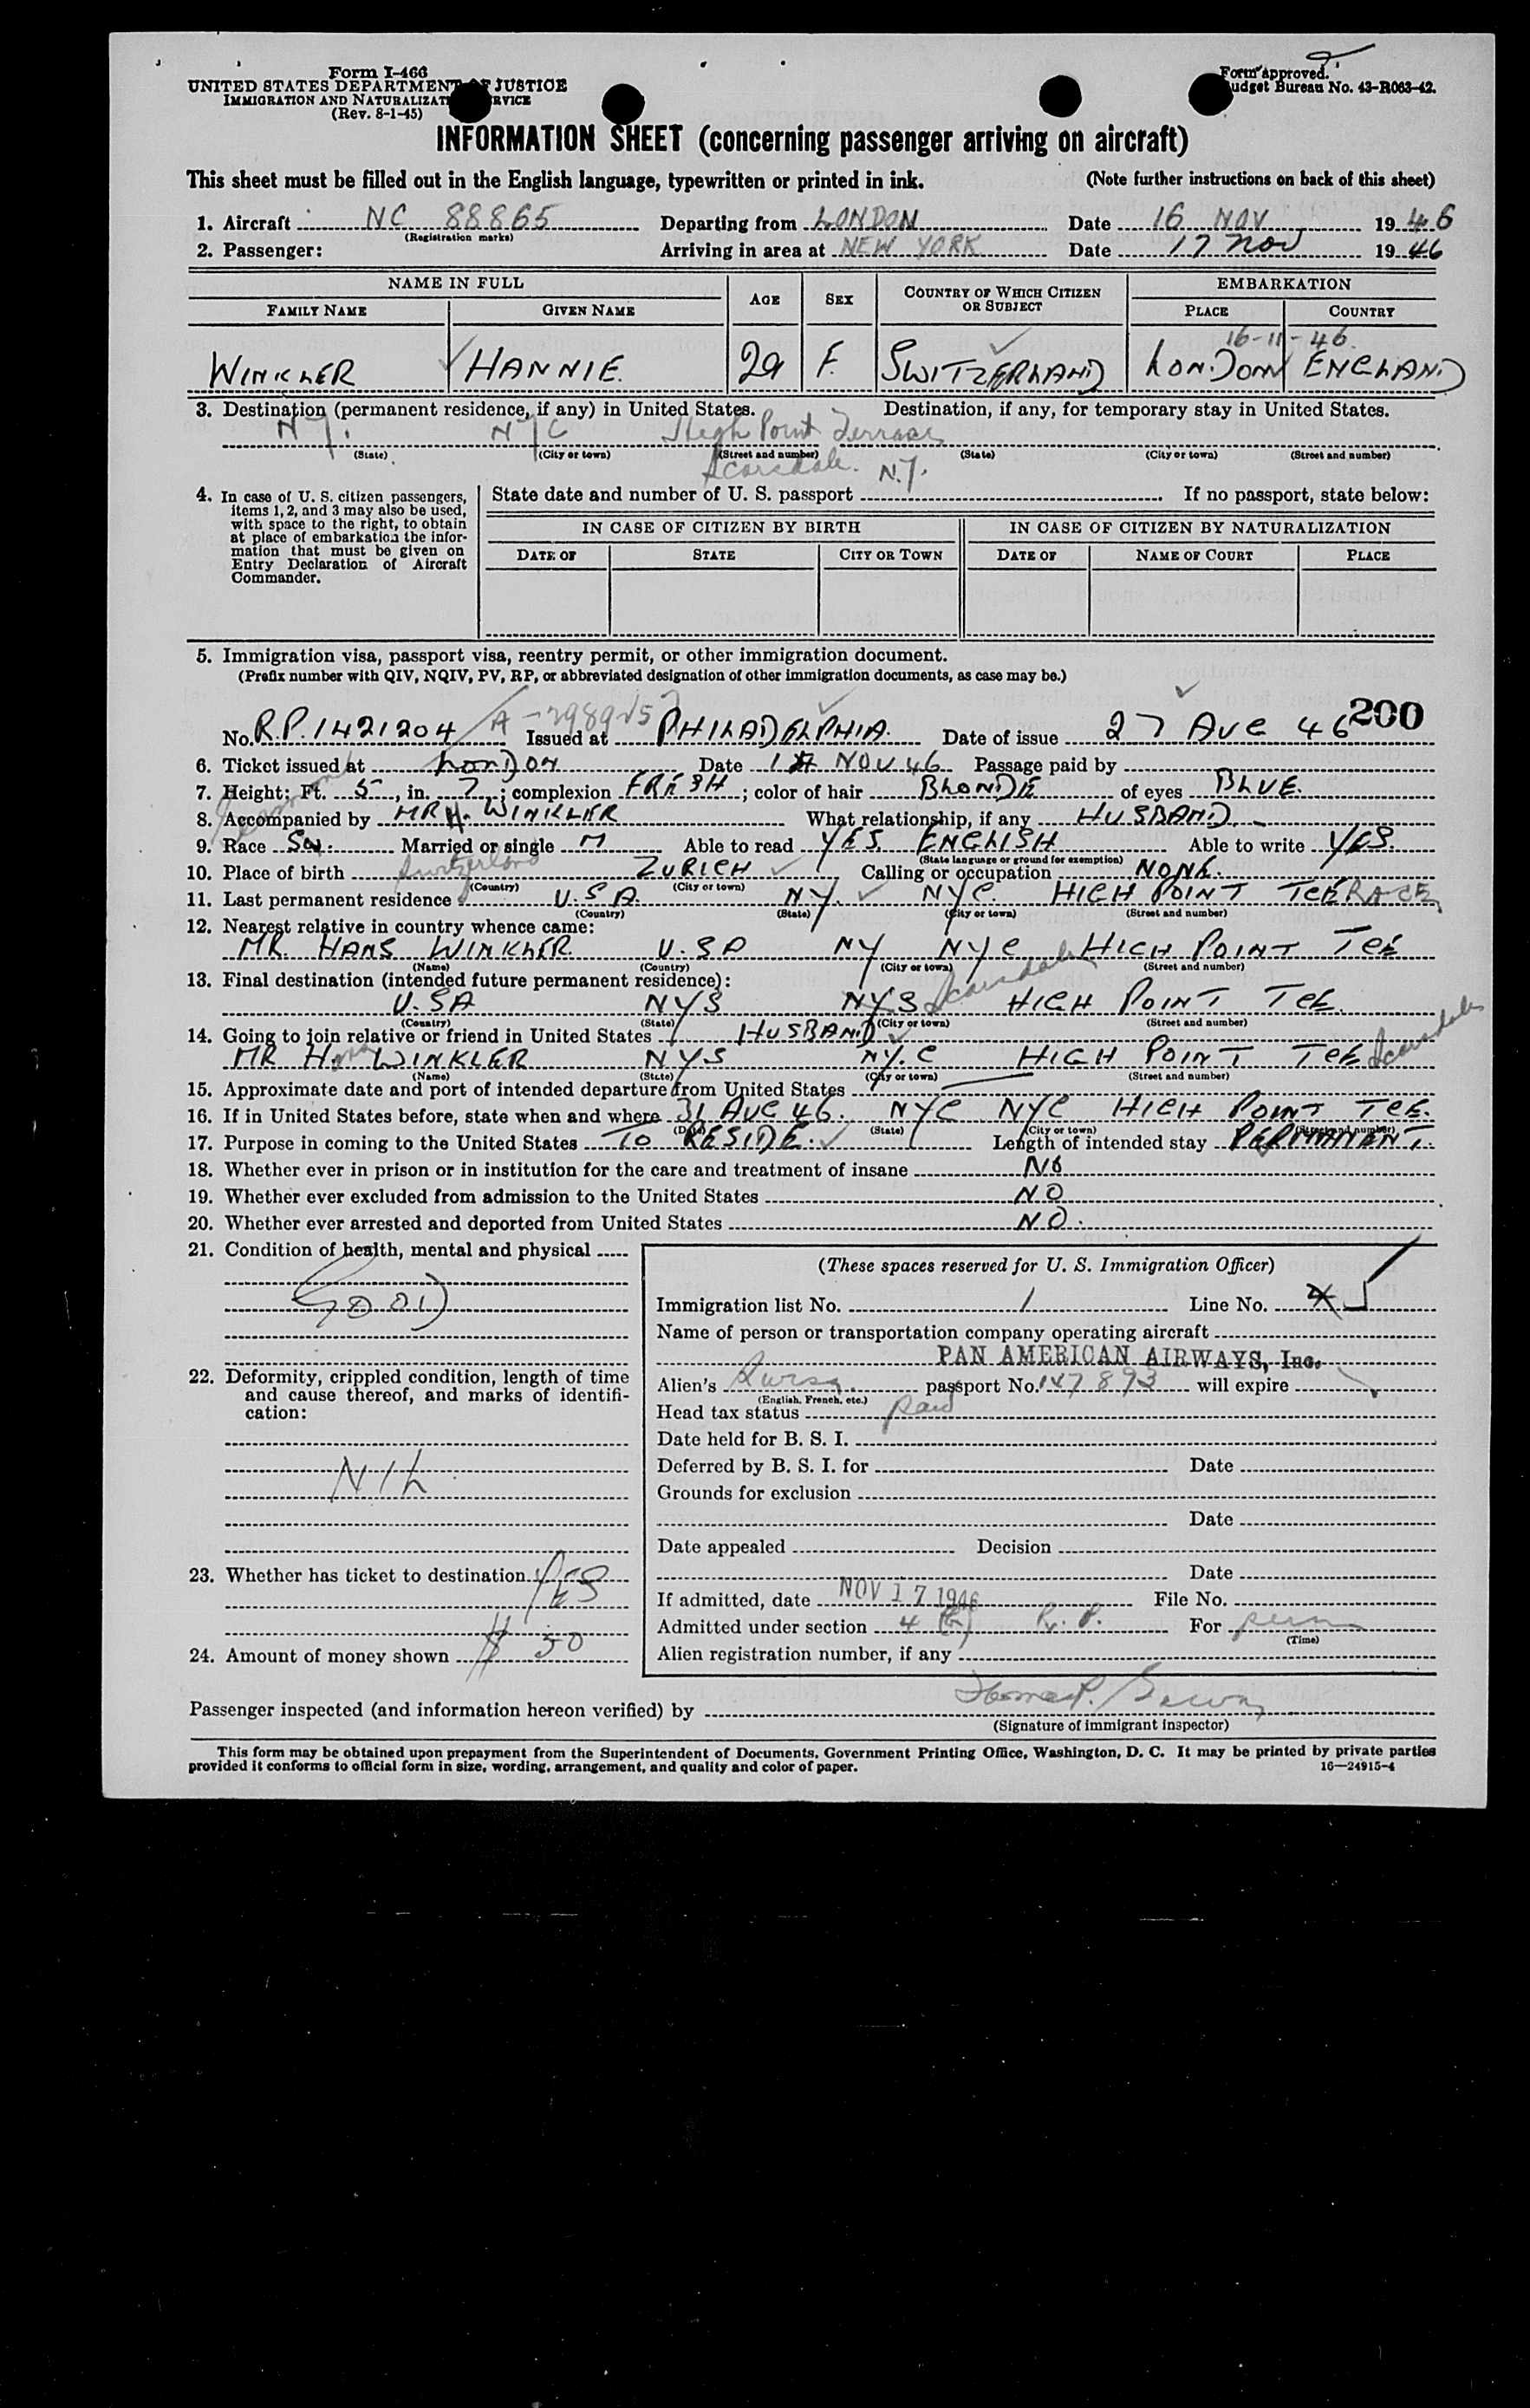 Form I-466
UNITED STATES DEPARTMENT OF JUSTICE
IMMIGRATION AND NATURALIZATION SERVICE
(Rev. 8-1-45)
Form approved.
Budget Bureau No. 43-R063-42.
INFORMATION SHEET (concerning passenger arriving on aircraft)
This sheet must be filled out in the English language, typewritten or printed in ink. (Note further instructions on back of this sheet)
1. Aircraft NC 88865 Departing from LONDON Date 16 NOV 1946
(Registration marks)
2. Passenger: Arriving in area at NEW YORK Date 17 Nov 1946
NAME IN FULL AGE SEX COUNTRY OF WHICH CITIZEN OR SUBJECT EMBARKATION
FAMILY NAME GIVEN NAME PLACE COUNTRY
16-11-46
WINKLER HANNIE. 29 F. SWITZERLAND LONDON ENGLAND
3. Destination (permanent residence, if any) in United States. Destination, if any, for temporary stay in United States.
N.Y. NYC High Point Terrace
(State) (City or town) (Street and number) (State) (City or town) (Street and number)
Scarsdale. N.Y.
4. In case of U. S. citizen passengers, items 1, 2, and 3 may also be used, with space to the right, to obtain at place of embarkation the information that must be given on Entry Declaration of Aircraft Commander.
State date and number of U. S. passport If no passport, state below:
IN CASE OF CITIZEN BY BIRTH IN CASE OF CITIZEN BY NATURALIZATION
DATE OF STATE CITY OR TOWN DATE OF NAME OF COURT PLACE
5. Immigration visa, passport visa, reentry permit, or other immigration document.
(Prefix number with QIV, NQIV, PV, RP, or abbreviated designation of other immigration documents, as case may be.)
200
No. R.P. 1421204 Issued at PHILADELPHIA. Date of issue 27 AUG 46
6. Ticket issued at LONDON Date NOV 46 Passage paid by
7. Height: Ft. 5, in. 7; complexion FRESH; color of hair BLONDE of eyes BLUE.
8. Accompanied by MR H. WINKLER What relationship, if any HUSBAND.
9. Race Married or single M Able to read YES ENGLISH Able to write YES.
(State language or ground for exemption)
10. Place of birth Switzerland ZURICH Calling or occupation NONE.
(Country) (City or town)
11. Last permanent residence U.S.A. NY. NYC. HIGH POINT TERRACE
(Country) (State) (City or town) (Street and number)
12. Nearest relative in country whence came:
MR. HANS WINKLER U.S.A NY NYC HIGH POINT TCE
(Name) (Country) (City or town) (Street and number)
13. Final destination (intended future permanent residence):
U.SA NYS NYS Scarsdale HIGH POINT TCE.
(Country) (State) (City or town) (Street and number)
14. Going to join relative or friend in United States HUSBAND
MR H. WINKLER NYS NY.C HIGH POINT TCE Scarsdale
(Name) (State) (City or town) (Street and number)
15. Approximate date and port of intended departure from United States
16. If in United States before, state when and where 31 AUG 46. NYC NYC HIGH POINT TCE.
(Date) (State) (City or town) (Street and number)
17. Purpose in coming to the United States TO RESIDE. Length of intended stay PERMANENT.
18. Whether ever in prison or in institution for the care and treatment of insane NO
19. Whether ever excluded from admission to the United States NO
20. Whether ever arrested and deported from United States NO.
21. Condition of health, mental and physical
GOOD
22. Deformity, crippled condition, length of time and cause thereof, and marks of identification:
NIL
23. Whether has ticket to destination YES
24. Amount of money shown $ 50
(These spaces reserved for U. S. Immigration Officer)
Immigration list No. 1 Line No. 5
Name of person or transportation company operating aircraft
PAN AMERICAN AIRWAYS, Inc.
Alien's Swiss passport No. 147893 will expire
(English, French, etc.)
Head tax status paid
Date held for B. S. I.
Deferred by B. S. I. for Date
Grounds for exclusion
Date
Date appealed Decision
Date
If admitted, date NOV 17 1946 File No.
Admitted under section 4 (b) R. P. For perm
(Time)
Alien registration number, if any
Passenger inspected (and information hereon verified) by
(Signature of immigrant inspector)
This form may be obtained upon prepayment from the Superintendent of Documents, Government Printing Office, Washington, D. C. It may be printed by private parties
provided it conforms to official form in size, wording, arrangement, and quality and color of paper. 16—24915-4